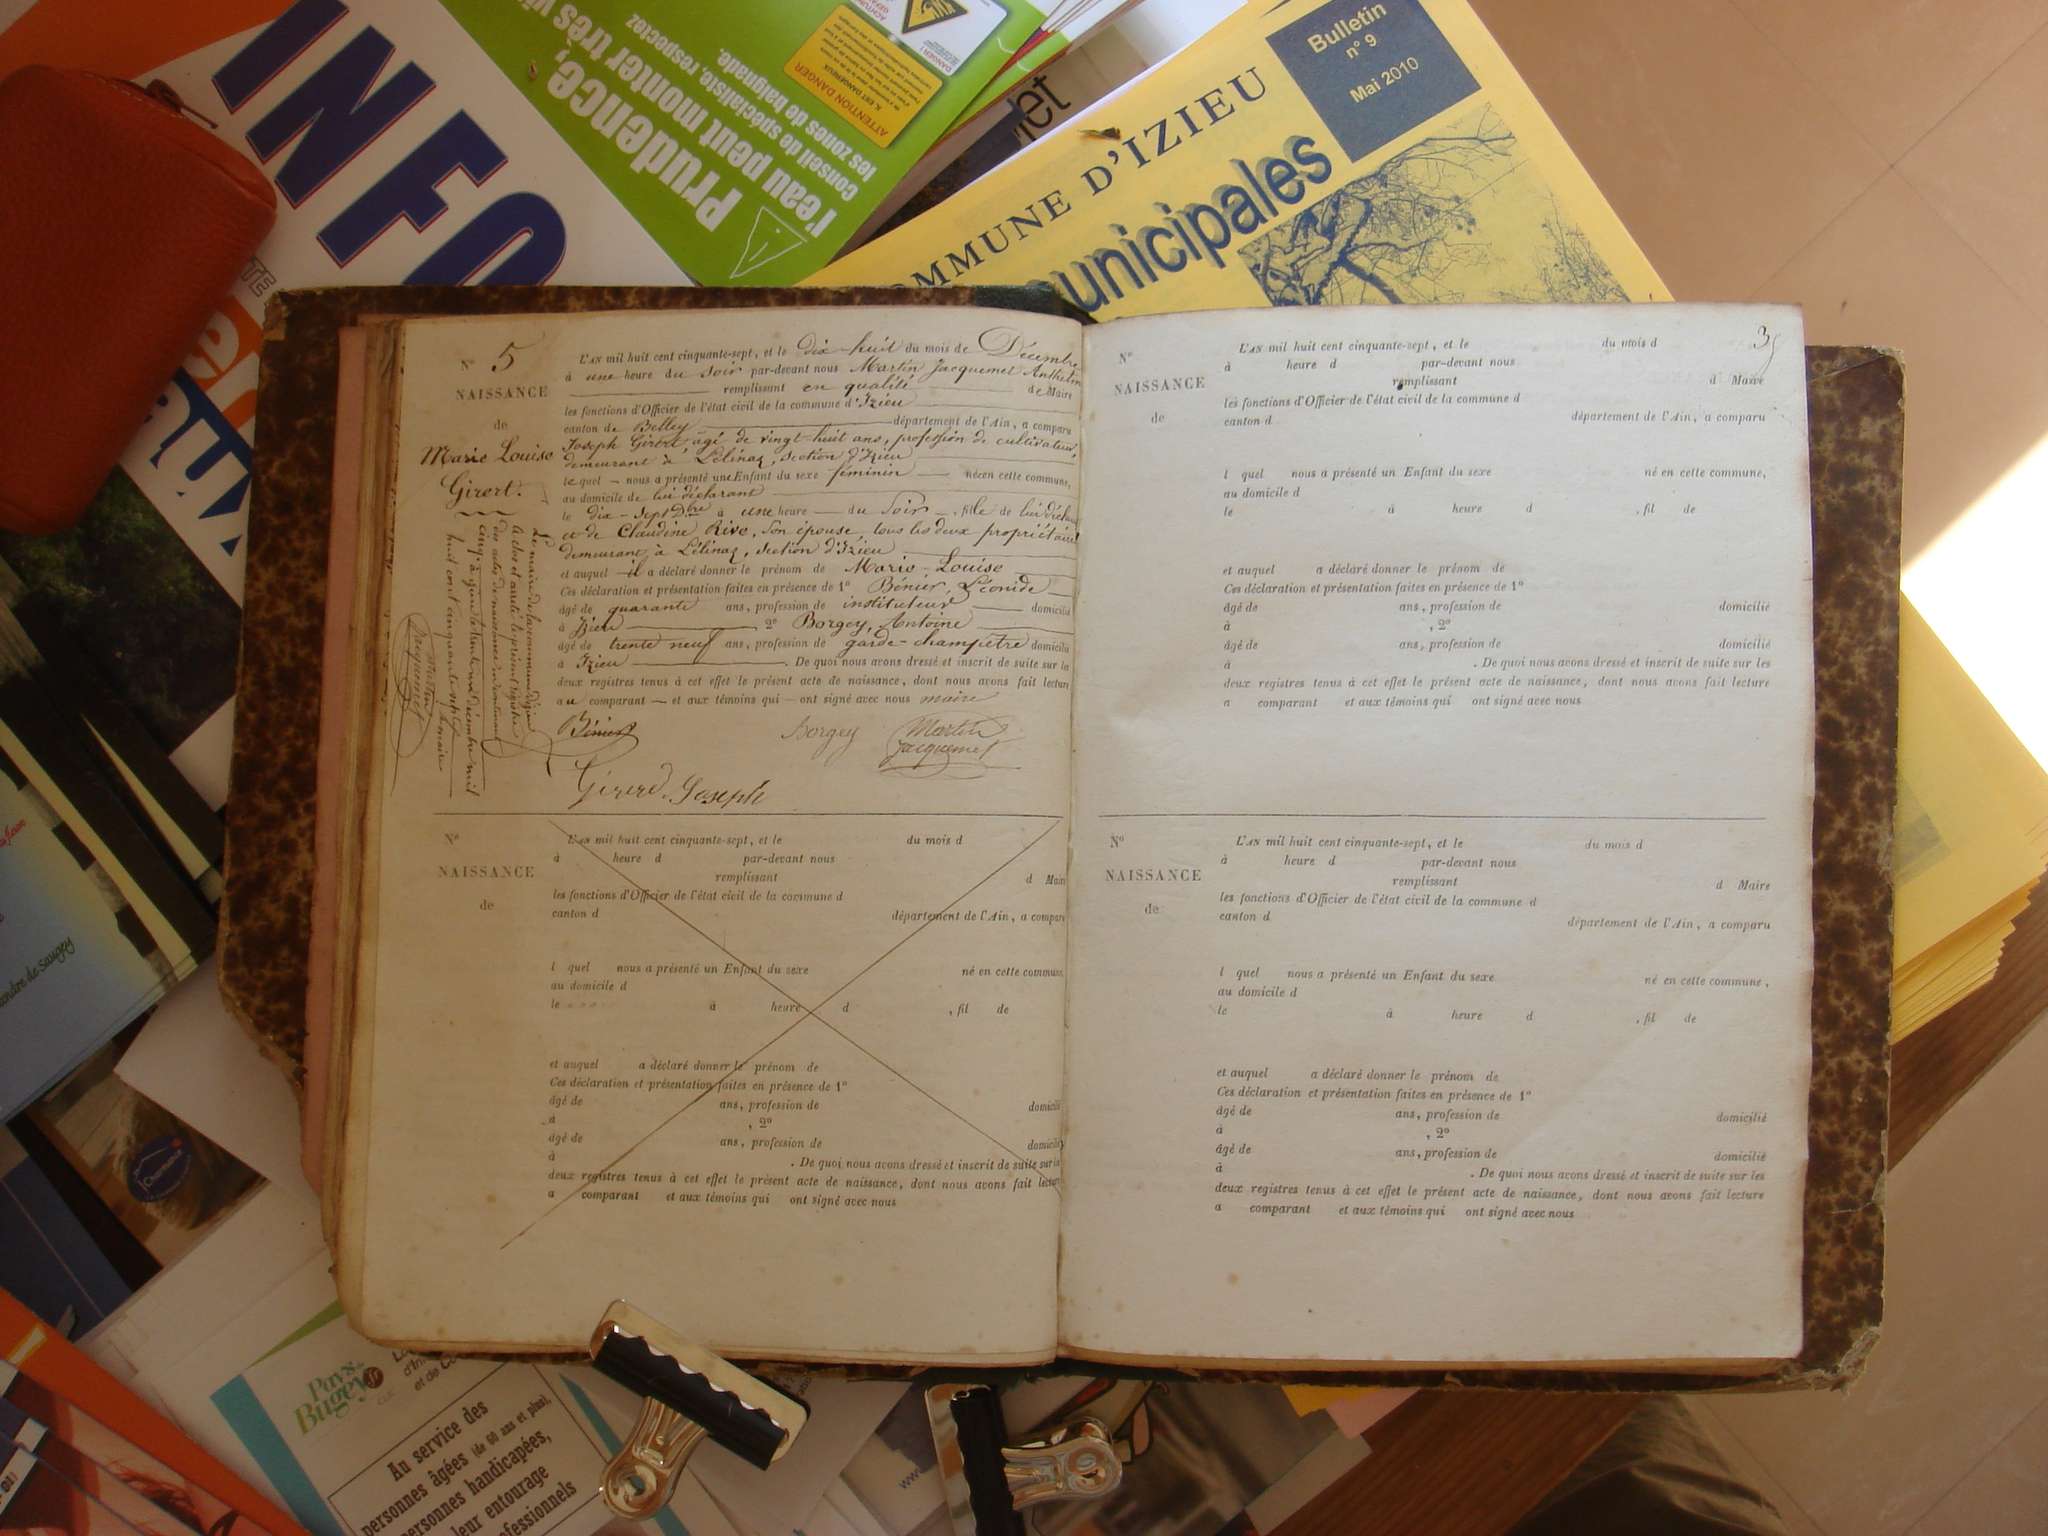 INFO
Prudence,
l'eau peut monter très vi
conseil de spécialiste, respectez
les zones de baignade.
ATTENTION DANGER
DANGER !
COMMUNE D'IZIEU
unicipales
Bulletin
n° 9
Mai 2010
N° 5
NAISSANCE
de
Marie Louise
Girerd.
L'AN mil huit cent cinquante-sept, et le dix-huit du mois de Décembre
à une heure du soir par-devant nous Martin Jacquemet Anthelme
remplissant en qualité de Maire
les fonctions d'Officier de l'état civil de la commune d'Izieu
canton de Belley département de l'Ain, a comparu
Joseph Girerd, âgé de vingt-huit ans, profession de cultivateur,
demeurant à Lélinaz, section d'Izieu
lequel nous a présenté une Enfant du sexe féminin née en cette commune,
au domicile de lui déclarant
le dix-sept Dbre à une heure du soir, fille de lui déclarant
et de Claudine Rive, son épouse, tous les deux propriétaires
demeurant à Lélinaz, section d'Izieu
et auquel il a déclaré donner le prénom de Marie-Louise
Ces déclaration et présentation faites en présence de 1° Bénier, Léonide
âgé de quarante ans, profession de instituteur domicilié
à Izieu 2° Borgey, Antoine
âgé de trente neuf ans, profession de garde-champêtre domicilié
à Izieu . De quoi nous avons dressé et inscrit de suite sur les
deux registres tenus à cet effet le présent acte de naissance, dont nous avons fait lecture
au comparant et aux témoins qui ont signé avec nous maire
Bénier Borgey Martin
Jacquemet
Girerd Joseph
Le maire de la commune d'Izieu
a clos et arrêté le présent registre
des actes de naissance contenant
cinq, à Izieu le trente un décembre mil
huit cent cinquante sept
Martin
Jacquemet
N°
NAISSANCE
de
L'AN mil huit cent cinquante-sept, et le du mois d
à heure d par-devant nous
remplissant d Maire
les fonctions d'Officier de l'état civil de la commune d
canton d département de l'Ain, a comparu
l quel nous a présenté un Enfant du sexe né en cette commune,
au domicile d
le à heure d , fil de
et auquel a déclaré donner le prénom de
Ces déclaration et présentation faites en présence de 1°
âgé de ans, profession de domicilié
à , 2°
âgé de ans, profession de domicilié
à . De quoi nous avons dressé et inscrit de suite sur les
deux registres tenus à cet effet le présent acte de naissance, dont nous avons fait lecture
a comparant et aux témoins qui ont signé avec nous
3
N°
NAISSANCE
de
L'AN mil huit cent cinquante-sept, et le du mois d
à heure d par-devant nous
remplissant d Maire
les fonctions d'Officier de l'état civil de la commune d
canton d département de l'Ain, a comparu
l quel nous a présenté un Enfant du sexe né en cette commune,
au domicile d
le à heure d , fil de
et auquel a déclaré donner le prénom de
Ces déclaration et présentation faites en présence de 1°
âgé de ans, profession de domicilié
à , 2°
âgé de ans, profession de domicilié
à . De quoi nous avons dressé et inscrit de suite sur les
deux registres tenus à cet effet le présent acte de naissance, dont nous avons fait lecture
a comparant et aux témoins qui ont signé avec nous
N°
NAISSANCE
de
L'AN mil huit cent cinquante-sept, et le du mois d
à heure d par-devant nous
remplissant d Maire
les fonctions d'Officier de l'état civil de la commune d
canton d département de l'Ain, a comparu
l quel nous a présenté un Enfant du sexe né en cette commune,
au domicile d
le à heure d , fil de
et auquel a déclaré donner le prénom de
Ces déclaration et présentation faites en présence de 1°
âgé de ans, profession de domicilié
à , 2°
âgé de ans, profession de domicilié
à . De quoi nous avons dressé et inscrit de suite sur les
deux registres tenus à cet effet le présent acte de naissance, dont nous avons fait lecture
a comparant et aux témoins qui ont signé avec nous
Pays
Bugey
Au service des
personnes âgées (de 60 ans et plus),
personnes handicapées,
leur entourage